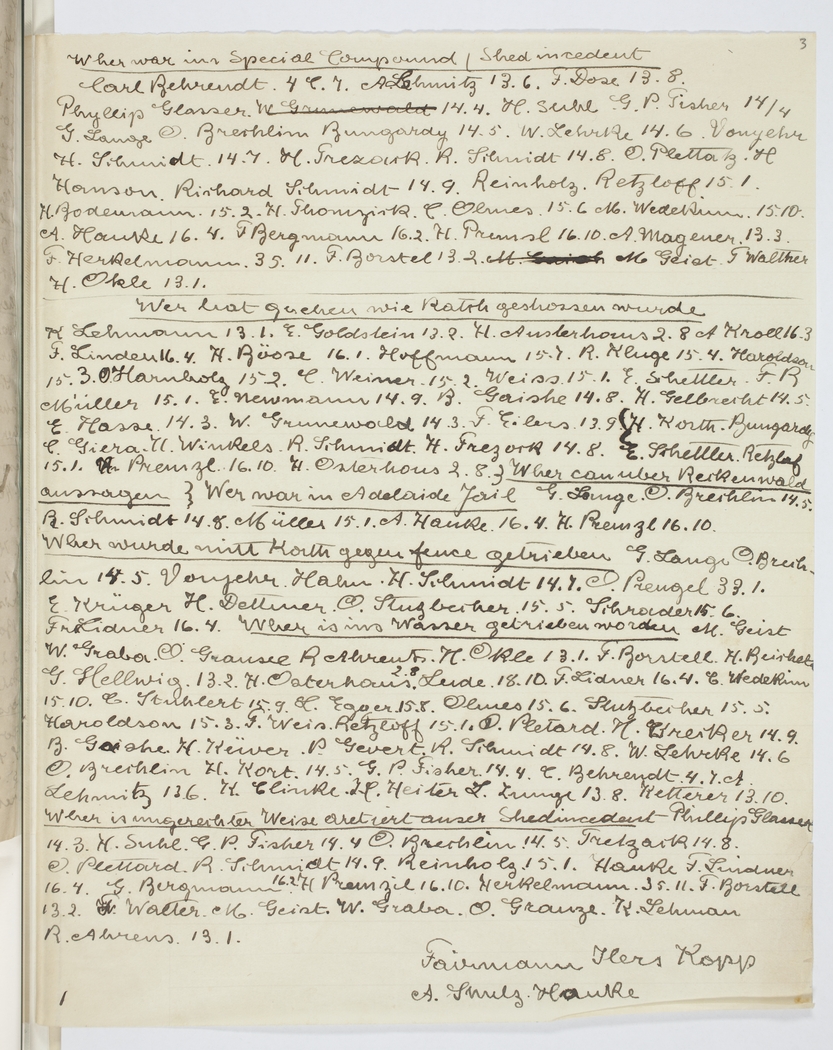 3
Wher war ins Special Compound / Shed incedent
Carl Behrendt. 4 C. 7. A Lehmitz 13.6. F. Dose 13.8.
Phyllip Glasser. W Grunewald 14.4. H. Suhl G. P. Fisher 14/4
G. Lange O. Brechlin Bungardy 14.5. W. Lehrke 14.6. Vonjehr
H. Schmidt. 14.7. H. Trezack. R. Schmidt 14.8. O. Plettatz. H
Hanson. Richard Schmidt 14.9. Reinholz. Retzloff 15.1.
H. Bodemann. 15.2. H. Thomzick. C. Olmes. 15.6 M. Wedekinn. 15.10.
A. Hauke 16.4. F Bergmann 16.2. H. Premsl 16.10. A. Magener. 13.3.
F. Herkelmann. 35.11. F. Borstel 13.2. M. Geist. F Walther
H. Okle 13.1.
Wer hat gsehen wie Katsh geshossen wurde
K Lehmann 13.1. E. Goldstein 13.2. H. Austerhaus 2.8 A Kroll 16.3
F. Linden 16.4. H. Böose 16.1. Hoffmann 15.7. R. Kluge 15.4. Haroldson
15.3. O. Harnholz 15.2. C. Weiner. 15.2. Weiss. 15.1. E. Schettler. F R
Müller 15.1. E. Newmann 14.9. B. Gaishe 14.8. H. Gelbrecht 14.5.
E. Hasse. 14.3. W. Grunewald 14.3. F. Eilers. 13.9 (H. Korth. Bungardy
C. Giera. H. Winkels. R. Schmidt. H. Frezock 14.8. E. Schettler. Retzlaf
15.1. H. Premzl. 16.10. H. Osterhous 2.8. } Wher can uber Reikenwald
aussagen } Wer war in Adelaide Jail G. Lange. O. Brechlin 14.5.
R. Schmidt 14.8. Müller 15.1. A. Hauke. 16.4. H. Premzl 16.10.
Wher wurde mitt Korth gegen fence getrieben G. Lange O. Brech-
lin 14.5. Vonjehr. Hahn. H. Schmidt 14.7. O. Prengel 33.1.
E. Krüger H. Dettmer. O. Stuzbecher. 15.5. Schrader 15.6.
Fr. Lidner 16.4. Wher is ins Wasser getrieben worden M. Geist
W. Graba. O. Grausee R Ahrents. H. Okle 13.1. F. Borstell. H. Beichelt
G. Hellwig. 13.2. H. Osterhaus 2.8. Lude. 18.10. F. Lidner 16.4. C. Wedekinn
15.10. C. Stuhlert 15.9. H. Egger. 15.8. Olmes 15.6. Stutzbecher 15.5.
Haroldson 15.3. F. Weis. Retzloff 15.1. O. Pletard. H. Kreiker 14.9.
B. Gaishe. H. Küwer. P Gevert. R. Schmidt 14.8. W. Lehrke 14.6
O. Brechlin H. Kort. 14.5. G. P. Fisher. 14.4. C. Behrendt. 4.7. A.
Lehmitz 13.6. K. Clinke. H. Heiter L. Lunge 13.8. Ketterer 13.10.
Wher is ungerechter Weise aretiert auser Shedincedent Phillip Glasser
14.3. H. Suhl. G. P. Fisher 14.4 O. Brechlin 14.5. Tretzack 14.8.
O. Plettard. R. Schmidt 14.9. Reinholz 15.1. Hauke F. Lindner
16.4. G. Bergmann 16.2. H Premzil 16.10. Herkelmann. 35.11. F. Borstell
13.2. F. Walter. M. Geist. W. Graba. O. Grauze. K. Lehman
R. Ahrens. 13.1.
Fairmann Ilers Kopp
A. Shulz. Hauke
1